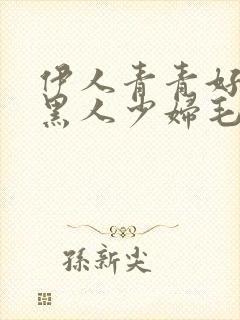 伊人青青好
黑人少婦毛
孫新尖